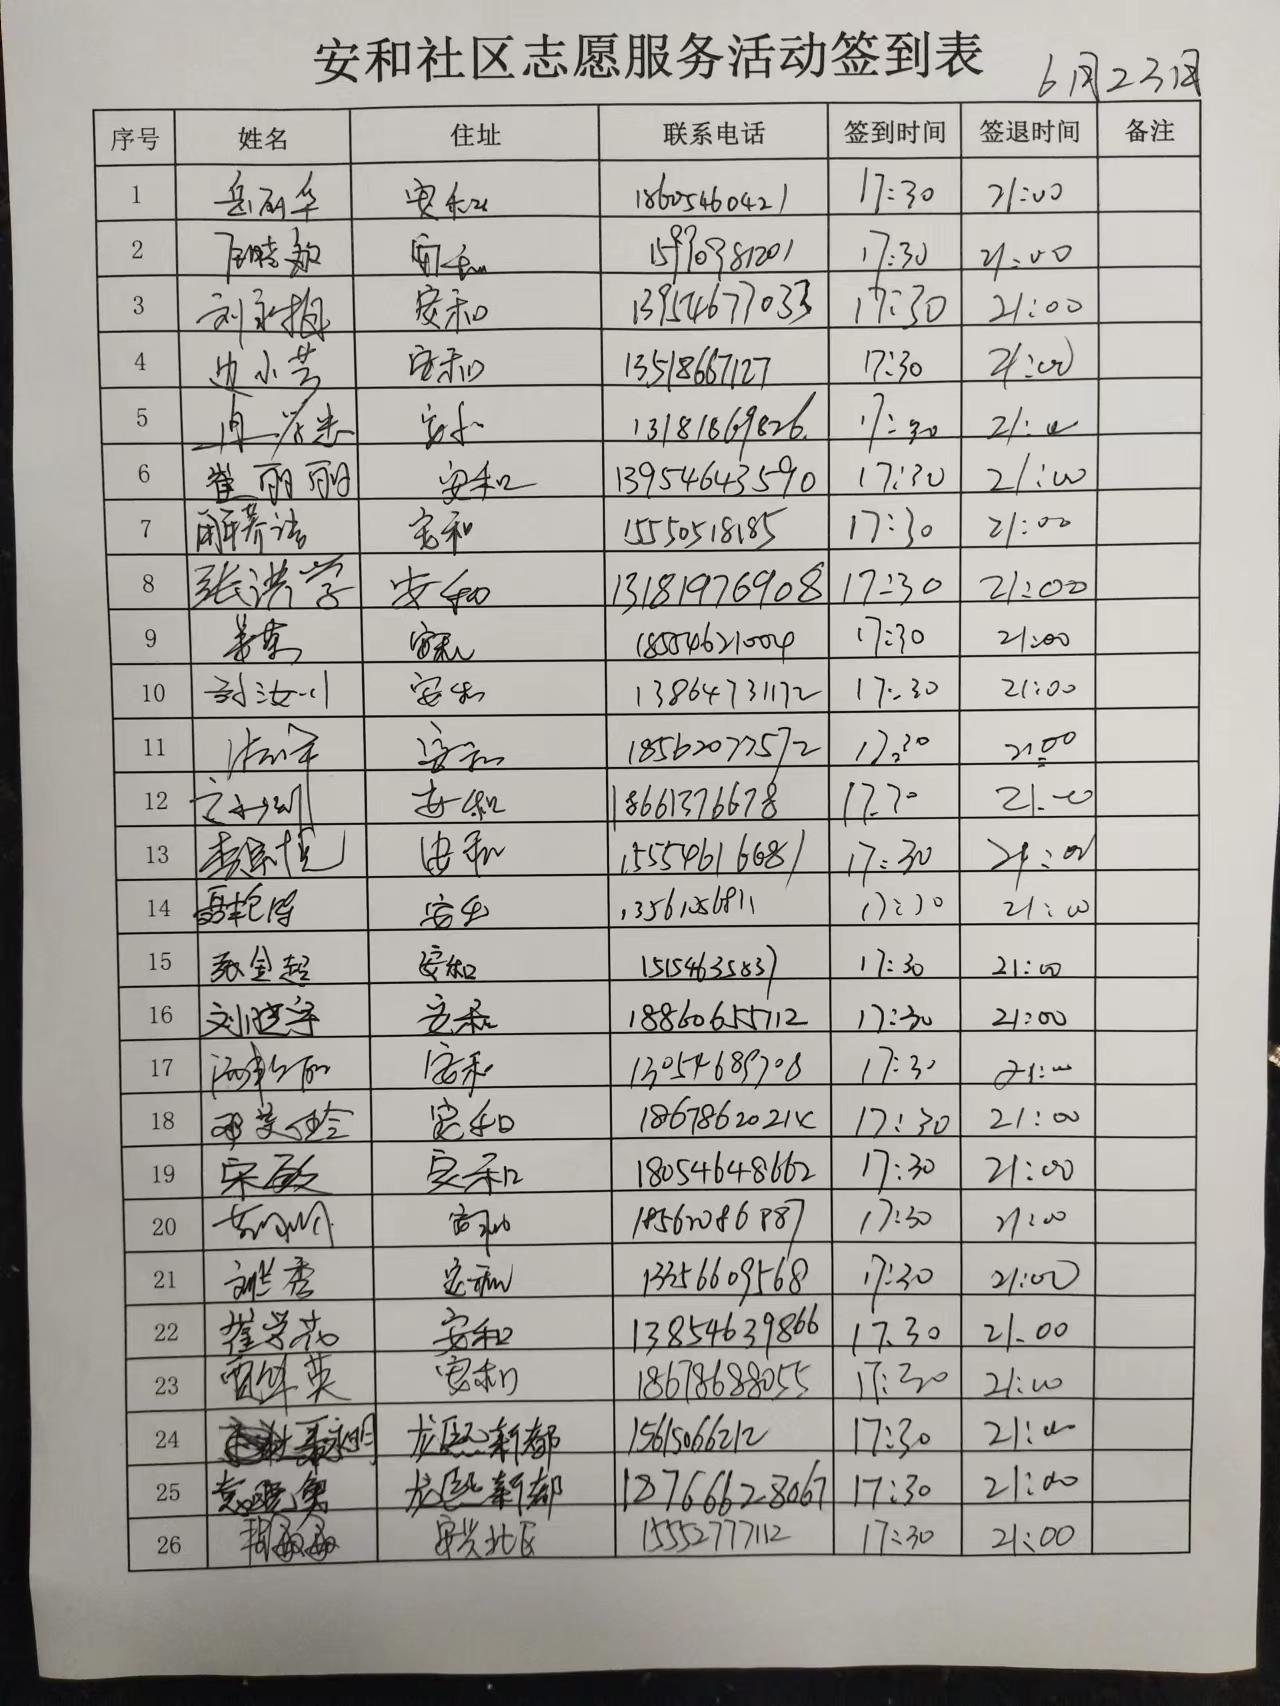 安和社区志愿服务活动签到表 6月23日
序号 姓名 住址 联系电话 签到时间 签退时间 备注
1 岳丽华 安和 18605460421 17:30 21:00
2 安和 15990981201 17:30 21:00
3 安和 13954677033 17:30 21:00
4 边小芸 安和 13518667127 17:30 21:00
5 安和 13181869826 17:30 21:00
6 崔丽丽 安和 13954643590 17:30 21:00
7 安和 15550518185 17:30 21:00
8 张洪学 安和 13181976908 17:30 21:00
9 安和 18554621004 17:30 21:00
10 刘汝川 安和 13864731172 17:30 21:00
11 安和 18562077572 17:30 21:00
12 安和 18661376678 21:00
13 安和 15554616681 17:30 21:00
14 安和 21:00
15 张金超 安和 15154635837 17:30 21:00
16 安和 18860655712 17:30 21:00
17 安和 13054689708 17:30 21:00
18 安和 17:30 21:00
19 宋敏 安和 18054648662 17:30 21:00
20 安和 18562086887 17:30 21:00
21 刘兰秀 安和 13356609568 17:30 21:00
22 崔学花 安和 13854639866 17:30 21:00
23 安和 18678688055 17:30 21:00
24 龙熙新都 15615066212 17:30 21:00
25 龙熙新都 18766628067 17:30 21:00
26 安兴北区 15552777112 17:30 21:00